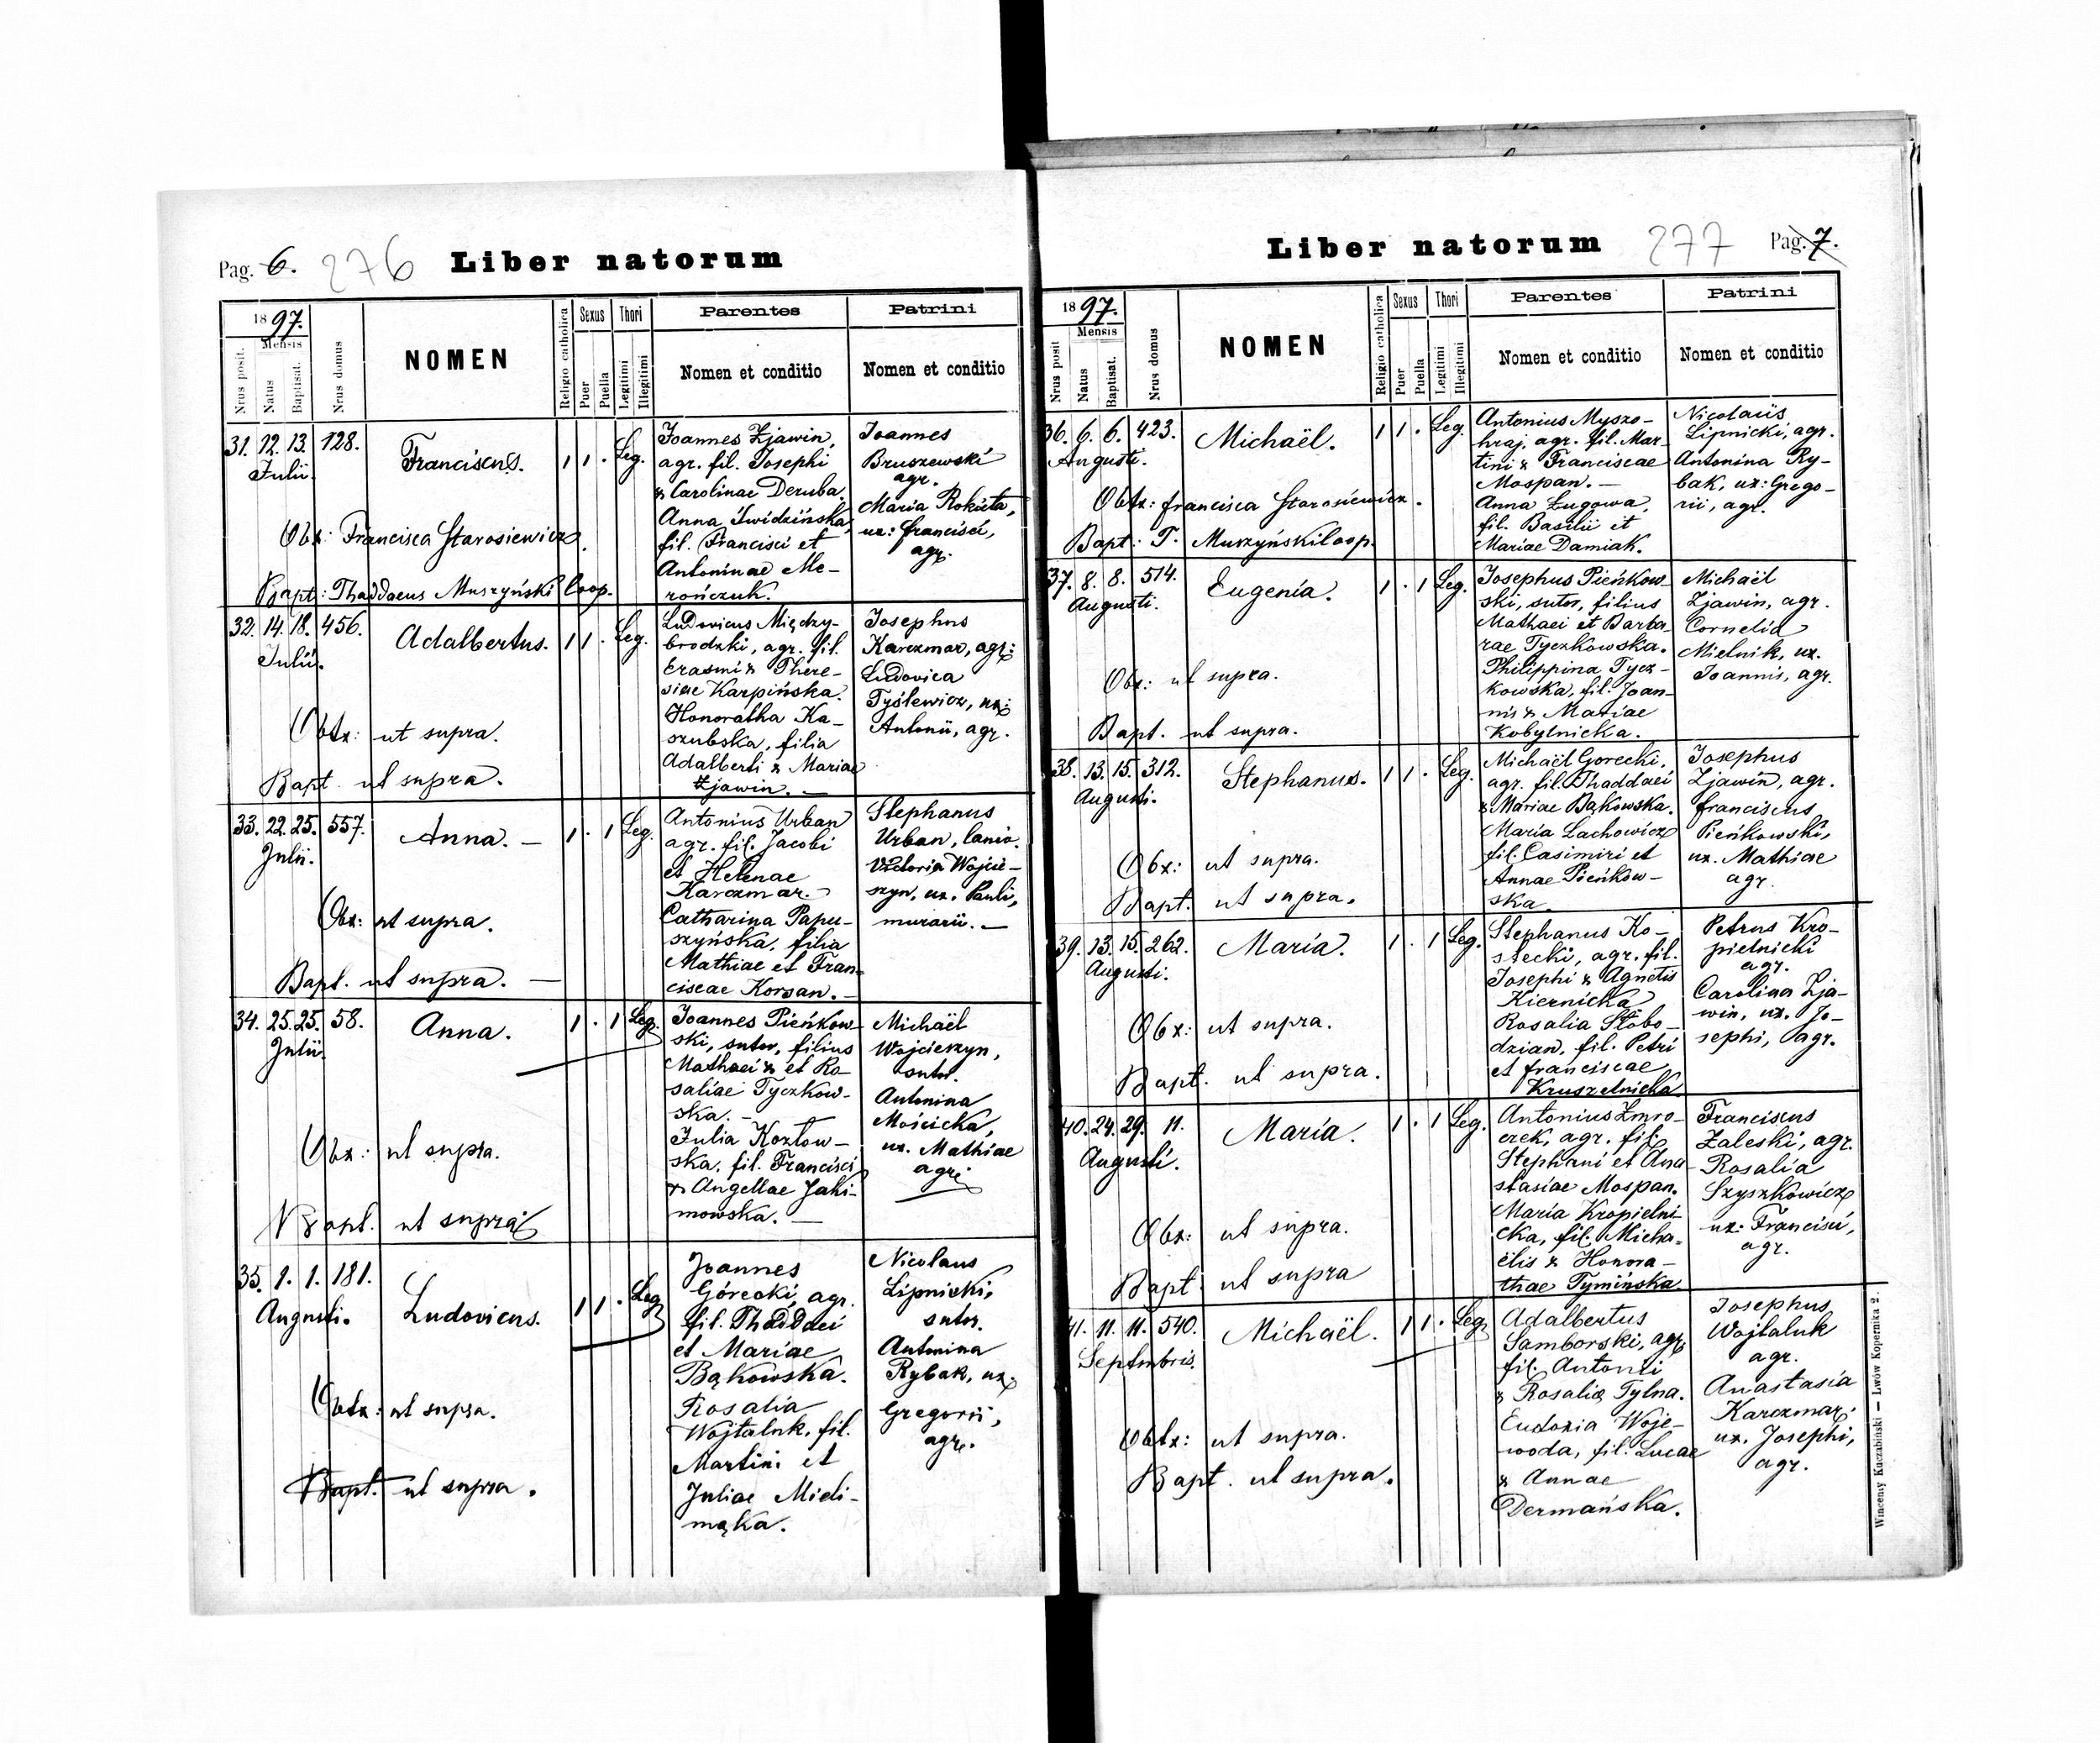 Pag. 6. 276 Liber natorum
1897.
Mensis
Nrus posit.
Natus
Baptisat.
Nrus domus
NOMEN
Religio catholica
Sexus
Puer
Puella
Thori
Legitimi
Illegitimi
Parentes
Nomen et conditio
Patrini
Nomen et conditio
31. 12. 13. 128.
Julii.
Franciscus.
1 1 . Leg.
Joannes Zjawin,
agr. fil. Josephi
& Carolinae Deruba.
Anna Świdzińska,
fil. Francisci et
Antoninae Me-
rończuk.
Joannes
Bruszewski
agr.
Maria Rokieta,
ux: Francisci,
agr.
Obx: Francisca Starosiewicz.
Bapt: Thaddaeus Muszyński Coop.
32. 14. 18. 456.
Julii.
Adalbertus.
1 1 . Leg.
Ludovicus Między-
brodzki, agr. fil.
Erasmi & There-
siae Karpińska.
Honoratha Ka-
szubska, filia
Adalberti & Mariae
Zjawin. —
Josephus
Karczmar, agr:
Ludovica
Tyślewicz, ux:
Antonii, agr.
Obtx: ut supra.
Bapt. ut supra.
33. 22. 25. 557.
Julii.
Anna. —
1 . 1 Leg.
Antonius Urban
agr. fil. Jacobi
et Helenae
Karczmar. —
Catharina Papu-
szyńska, filia
Mathiae et Fran-
ciscae Korsan. —
Stephanus
Urban, lanio.
Victoria Wojcie-
szyn, ux. Pauli,
murarii. —
Obx: ut supra.
Bapt. ut supra. —
34. 25. 25. 58.
Julii.
Anna.
1 . 1 Leg.
Joannes Pieńkow-
ski, sutor, filius
Mathaei & et Ro-
saliae Tyczkow-
ska. —
Julia Kozłow-
ska, fil. Francisci
& Angellae Jaki-
mowska. —
Michaël
Wojcieszyn,
sutor.
Antonina
Mościcka,
ux. Mathiae
agr:
Obx: ut supra.
Bapt. ut supra.
35. 1. 1. 181.
Augusti.
Ludovicus.
1 1 . Leg.
Joannes
Górecki, agr.
fil. Thaddaei
et Mariae
Bąkowska.
Rosalia
Wojtaluk, fil.
Martini et
Juliae Mieli-
mąka.
Nicolaus
Lipnicki,
sutor.
Antonina
Rybak, ux:
Gregorii,
agr.
Obtx: ut supra.
Bapt. ut supra.
Liber natorum 277 Pag. 7.
1897.
Mensis
Nrus posit
Natus
Baptisat.
Nrus domus
NOMEN
Religio catholica
Sexus
Puer
Puella
Thori
Legitimi
Illegitimi
Parentes
Nomen et conditio
Patrini
Nomen et conditio
36. 6. 6. 423.
Augusti.
Michaël.
1 1 . Leg.
Antonius Myszo-
hraj, agr. fil. Mar-
tini & Franciscae
Mospan. —
Anna Zugowa,
fil. Basilii et
Mariae Damiak.
Nicolaüs
Lipnicki, agr.
Antonina Ry-
bak, ux: Grego-
rii, agr.
Obtx: Francisca Starosiewicz.
Bapt: T. Muszyński Coop.
37. 8. 8. 514.
Augusti.
Eugenia.
1 . 1 Leg.
Josephus Pieńkow-
ski, sutor, filius
Mathaei et Barba-
rae Tyczkowska.
Philippina Tycz-
kowska, fil. Joan-
nis & Mariae
Kobylnicka.
Michaël
Zjawin, agr.
Cornelia
Mielnik, ux.
Joannis, agr.
Obx: ut supra.
Bapt. ut supra.
38. 13. 15. 312.
Augusti.
Stephanus.
1 1 . Leg.
Michaël Gorecki,
agr. fil. Thaddaei
& Mariae Bąkowska.
Maria Lachowicz
fil. Casimiri et
Annae Pieńkow-
ska.
Josephus
Zjawin, agr.
Franciscus
Pieńkowski,
ux. Mathiae
agr.
Obx: ut supra.
Bapt. ut supra.
39. 13. 15. 262.
Augusti.
Maria.
1 . 1 Leg.
Stephanus Ko-
stecki, agr. fil.
Josephi & Agnetis
Kiernicka
Rosalia Słobo-
dzian, fil. Petri
et Franciscae
Kruszelnicka.
Petrus Kro-
pielnicki
agr.
Carolina Zja-
win, ux. Jo-
sephi, agr.
Obx: ut supra.
Bapt. ut supra.
40. 24. 29. 11.
Augusti.
Maria.
1 . 1 Leg.
Antonius Zmro-
czek, agr. fil.
Stephani et Ana-
stasiae Mospan.
Maria Kropielni-
cka, fil. Micha-
ëlis & Honora-
thae Tymińska.
Franciscus
Zaleski, agr.
Rosalia
Szyszkowicz
ux: Francisci,
agr.
Obx: ut supra.
Bapt. ut supra
41. 11. 11. 540.
Septmbris.
Michaël.
1 1 . Leg.
Adalbertus
Samborski, agr.
fil. Antonii
& Rosaliae Tylna.
Eudoxia Woje-
woda, fil. Lucae
& Annae
Dermańska.
Josephus
Wojtaluk
agr.
Anastasia
Karczmar,
ux. Josephi,
agr.
Obtx: ut supra.
Bapt. ut supra.
Wincenty Kuczabiński — Lwów Kopernika 2.